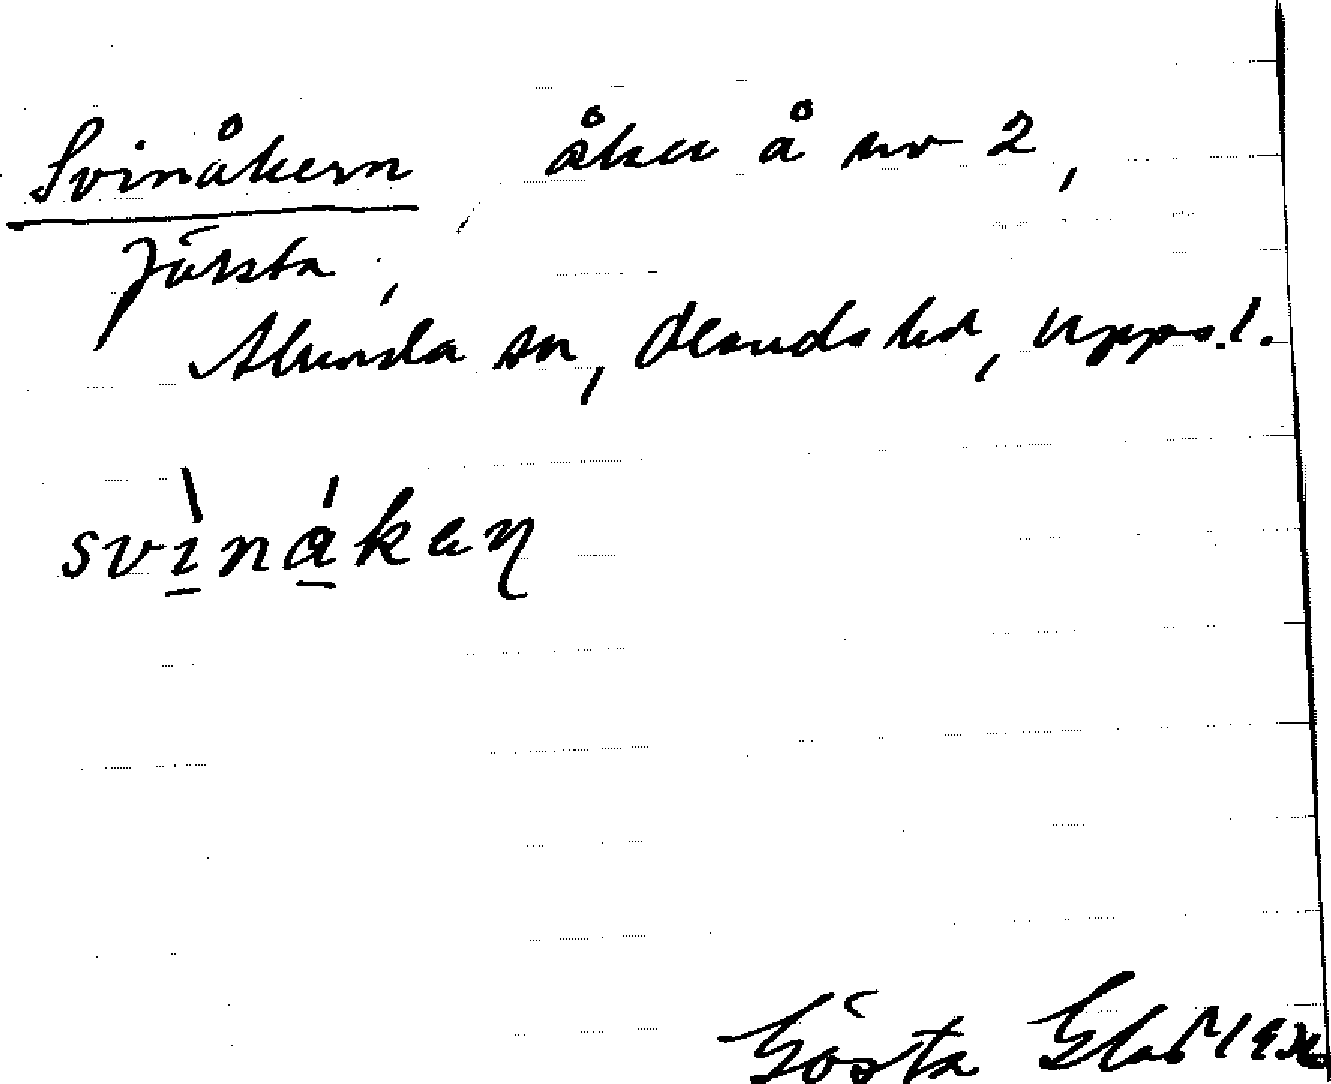 Svinåkern, åker å nr 2,
Järsta,
Alunda sn, Olands hd, Uppl.
svìnákaɳ
Gösta